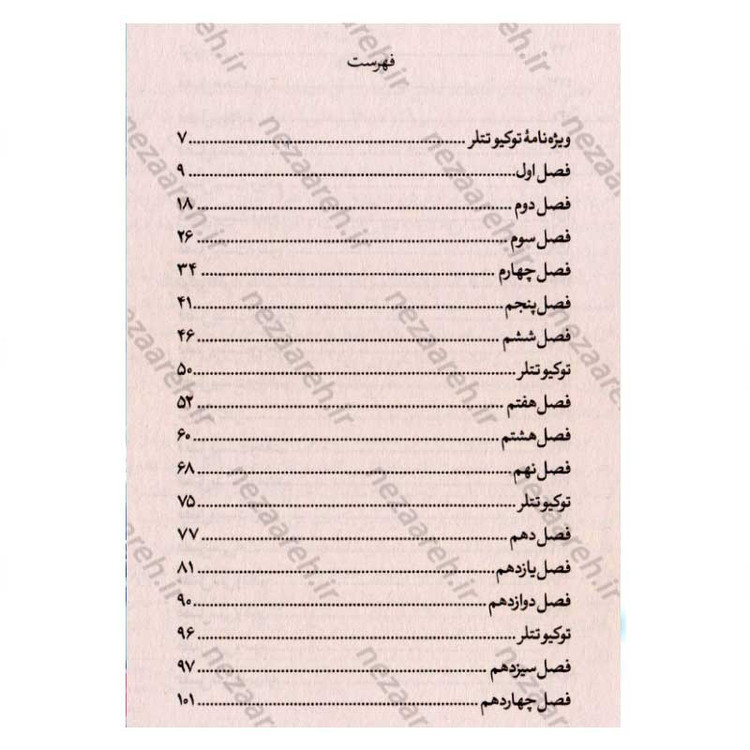 فهرست
ویژه‌نامهٔ توکیو تتلر ........ ۷
فصل اول ........ ۹
فصل دوم ........ ۱۸
فصل سوم ........ ۲۶
فصل چهارم ........ ۳۴
فصل پنجم ........ ۴۱
فصل ششم ........ ۴۶
توکیو تتلر ........ ۵۰
فصل هفتم ........ ۵۲
فصل هشتم ........ ۶۰
فصل نهم ........ ۶۸
توکیو تتلر ........ ۷۵
فصل دهم ........ ۷۷
فصل یازدهم ........ ۸۱
فصل دوازدهم ........ ۹۰
توکیو تتلر ........ ۹۶
فصل سیزدهم ........ ۹۷
فصل چهاردهم ........ ۱۰۱
nezaareh.ir